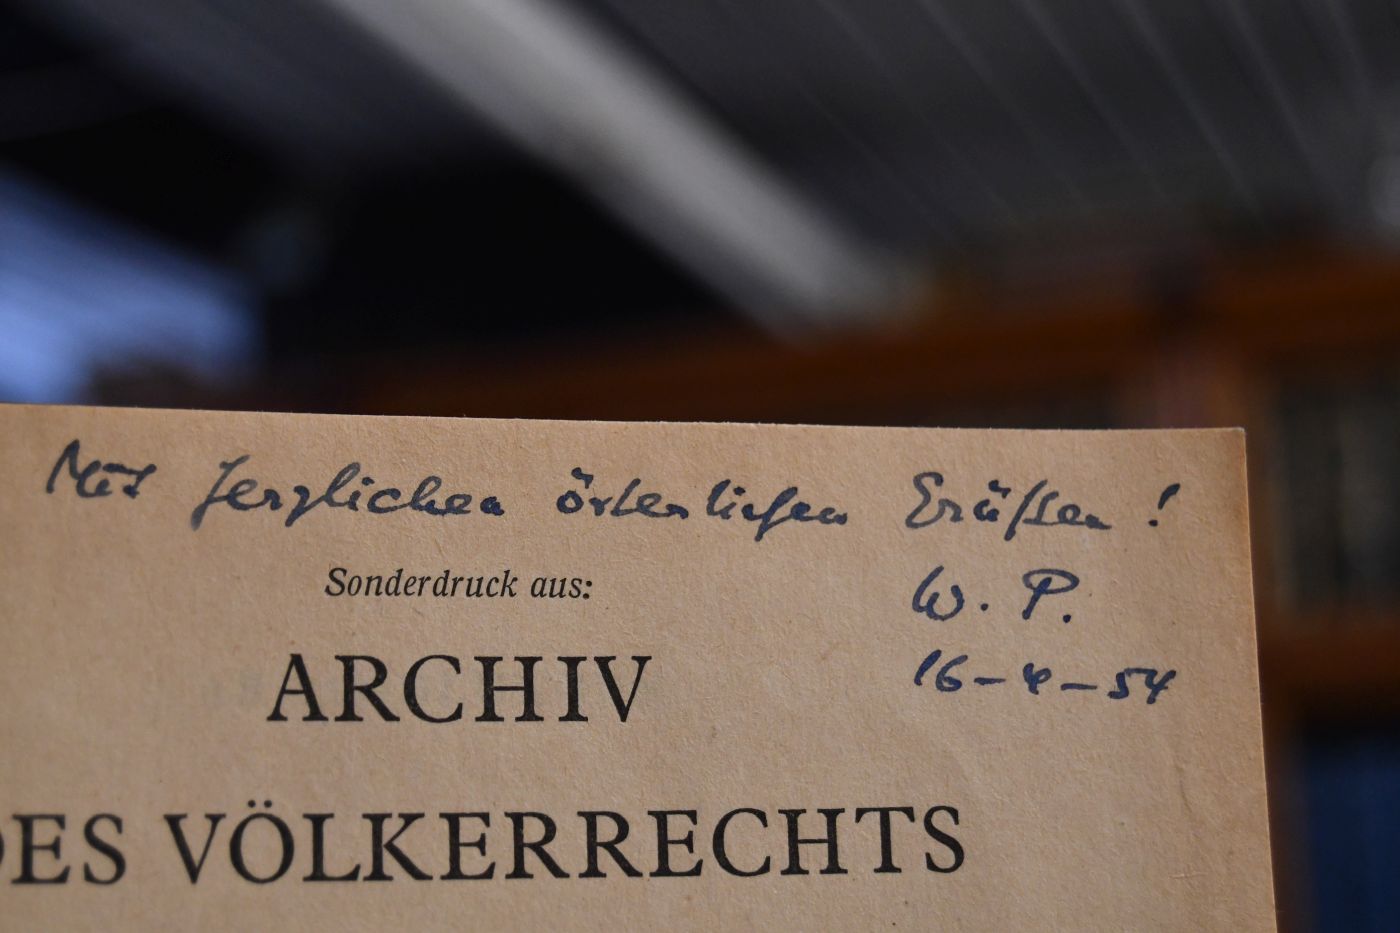 Mit herzlichen österlichen Grüßen!
W. P.
16-4-54
Sonderdruck aus:
ARCHIV
DES VÖLKERRECHTS